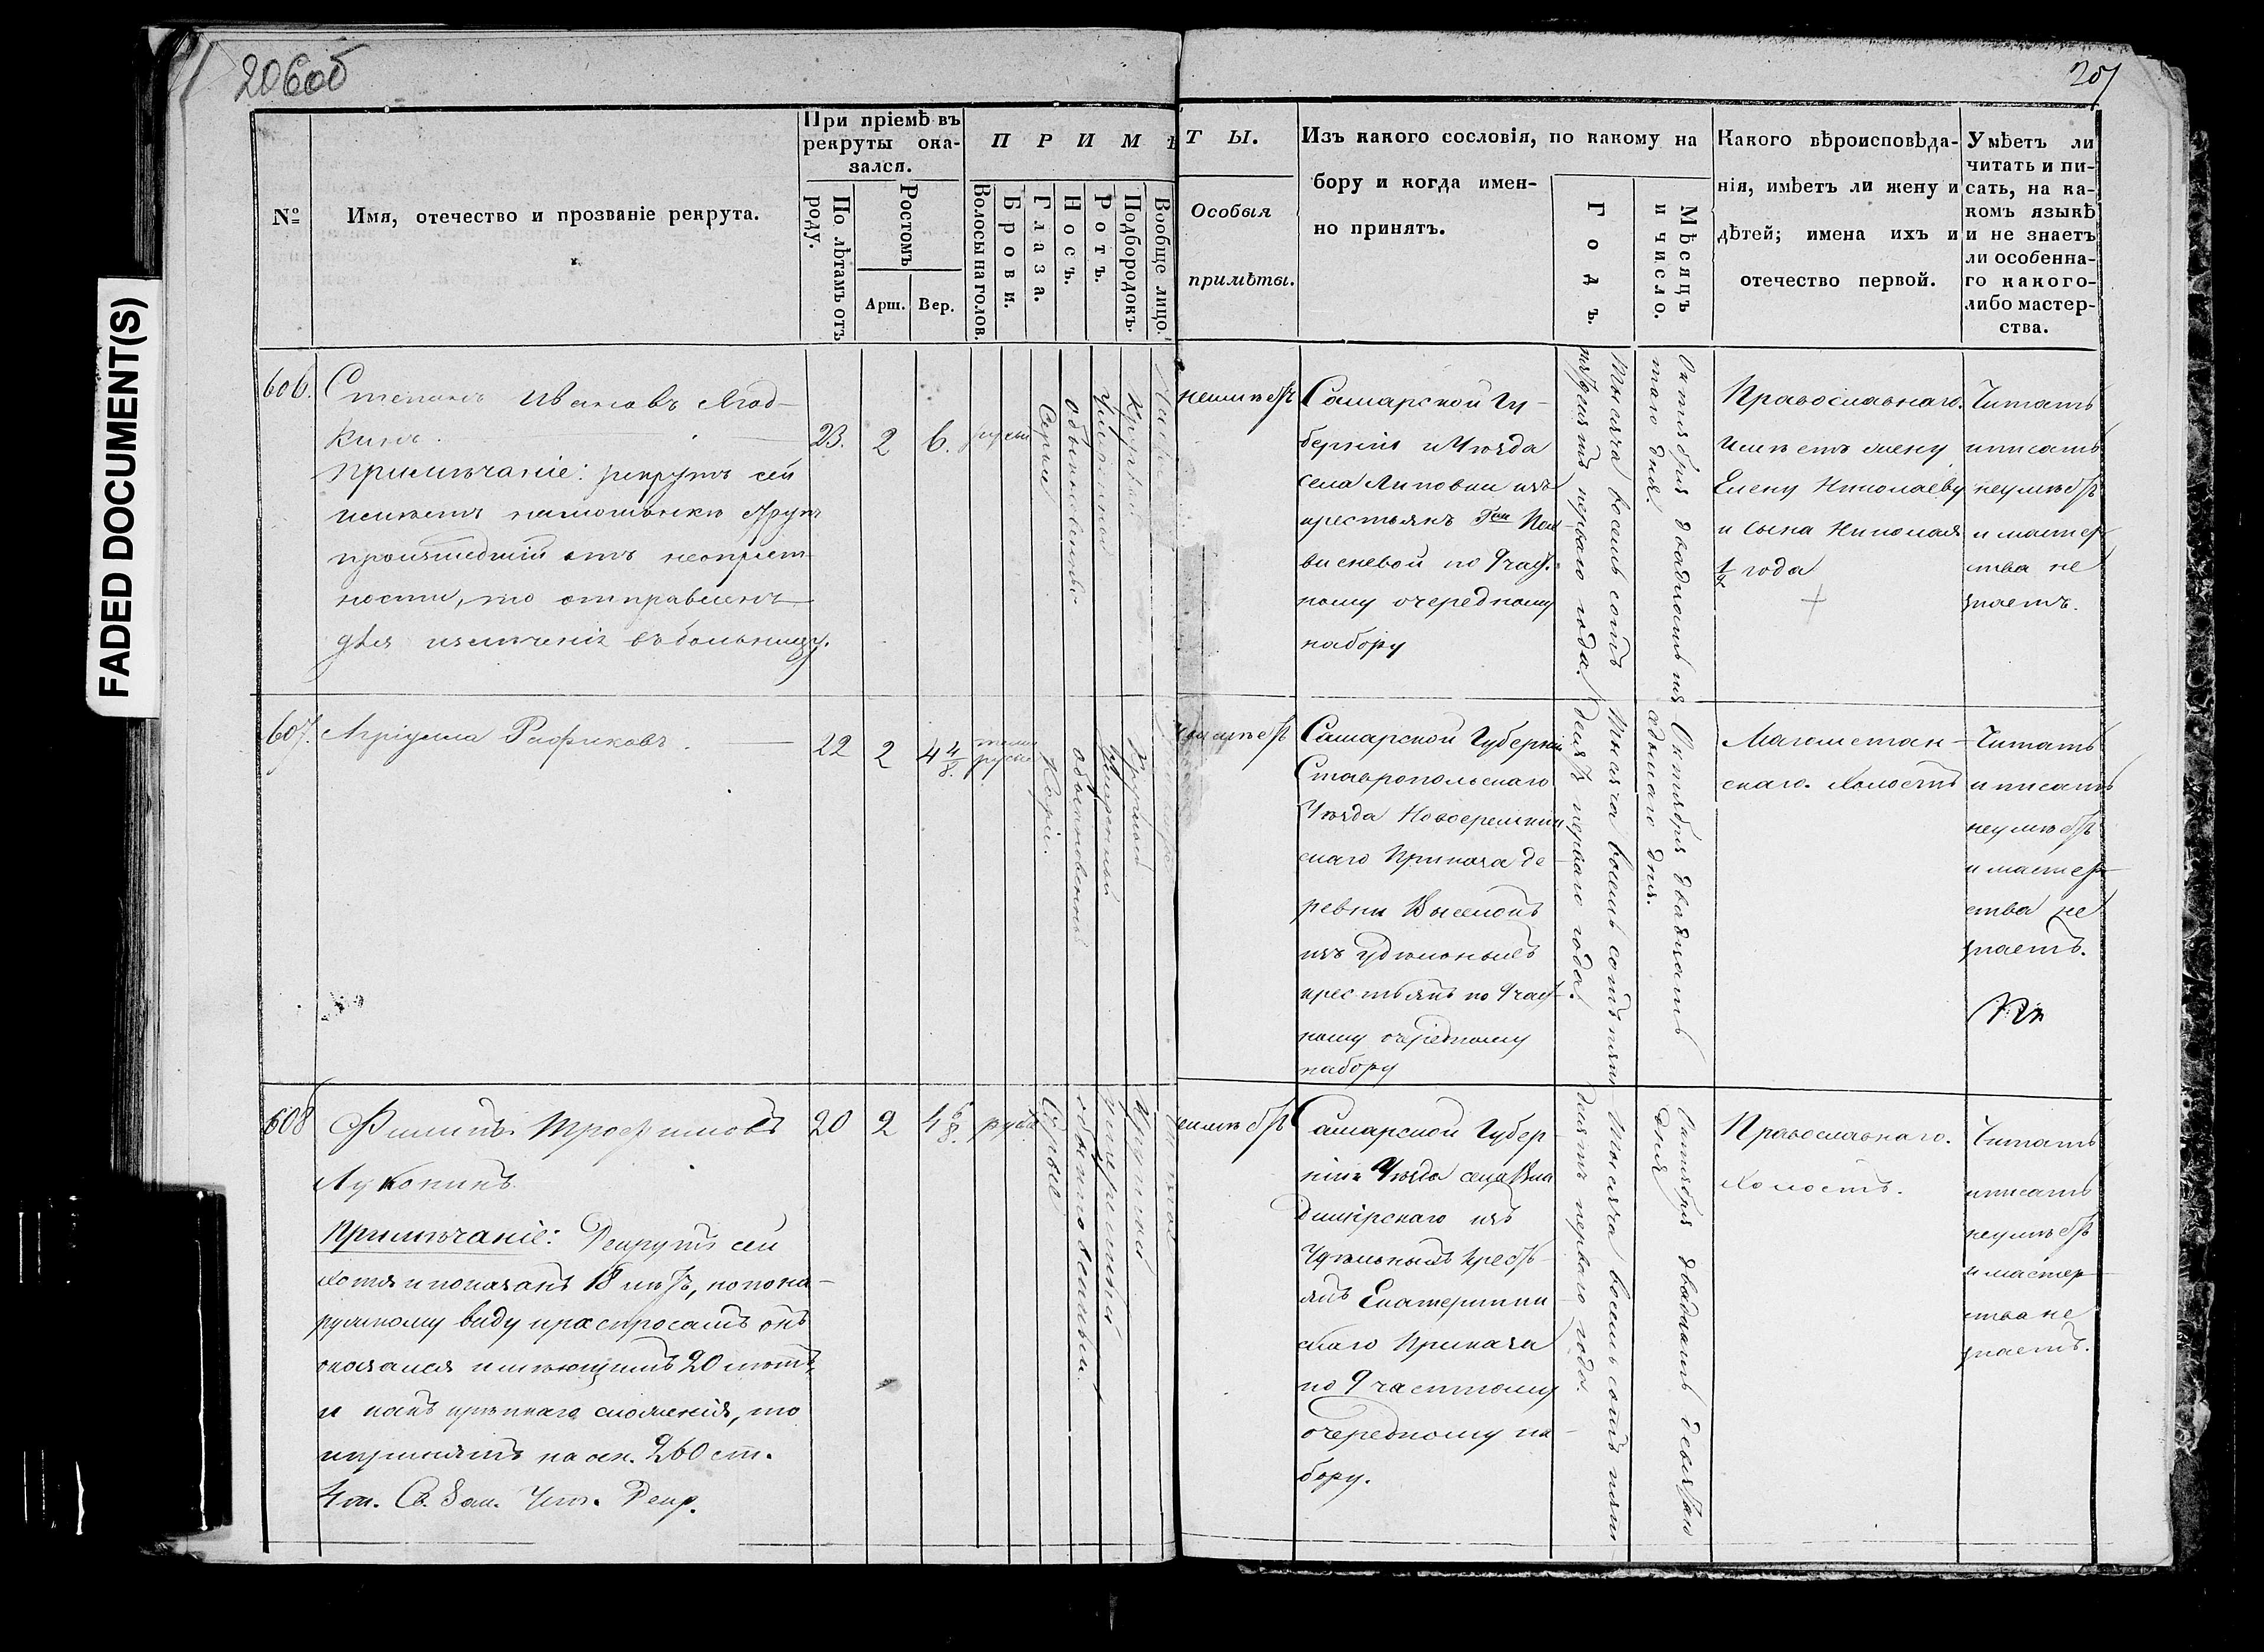 206об
207
FADED DOCUMENT(S)
№
Имя, отечество и прозваніе рекрута.
При пріемѣ въ
рекруты ока-
зался.
По лѣтамъ отъ
роду.
Ростомъ
Арш.
Вер.
ПРИМѢТЫ.
Волосы на голов.
Брови.
Глаза.
Носъ.
Ротъ.
Подбородокъ.
Вообще лицо.
Особыя
примѣты.
Изъ какого сословія, по какому на
бору и когда имен-
но принятъ.
Годъ.
Мѣсяцъ
и число.
Какого вѣроисповѣда-
нія, имѣетъ ли жену и
дѣтей; имена ихъ и
отечество первой.
Умѣетъ ли
читать и пи-
сать, на ка-
комъ языкѣ
и не знаетъ
ли особенна-
го какого-
либо мастер-
ства.
606.
Степанъ Ивановъ
кинъ.
Примѣчаніе: рекрутъ сей
имѣетъ на
происшедшій отъ неопрят-
ности, то отправленъ
для излеченія въ больницу.
23.
2
6.
русые
Серые
обыкновенный
умеренной
Круглый
неимѣетъ
Самарской Гу-
берніи и Уѣзда
села Липовки изъ
крестьянъ
по 9 част.
ному очередному
набору
Тысяча восемь сотъ
пятдесятъ перваго года.
Октября двадцать ся
таго дня.
Православнаго.
Имѣетъ жену
Елену Николаеву
и сына Николая
½ года
Читать
и писать
неумѣетъ
и мастер-
ства не
знаетъ.
607.
Рафиковъ.
22
2
4 4/8.
темно
русые
Каріе.
обыкновенный
умеренный
Круглый
неимѣетъ
Самарской Губерніи
Ставропольскаго
Уѣзда Новочеремшан
скаго Приказа де-
ревни Выселокъ
изъ удѣльныхъ
крестьянъ по 9 част-
ному очередному
набору
Тысяча восемь сотъ пять
десятъ перваго года.
Октября двадцать
седьмаго дня.
Магометан-
скаго. Холостъ
Читать
и писать
неумѣетъ
и мастер-
ства не
знаетъ.
608
Филипъ Трофимовъ
Луконинъ
Примѣчаніе: Рекрутъ сей
хотя и показанъ 18 лѣтъ, но по на-
ружному виду и распросамъ онъ
оказался имѣющимъ 20 лѣтъ,
и какъ крѣпкаго сложенія, то
и принятъ на осн. 260 ст.
4 т. Св. Зак. Уст. Рекр.
20
2
4 6/8.
русые
Серые
обыкновенный
умеренный
Круглый
чистое
неимѣетъ
Самарской Губер-
ніи и Уѣзда села Вла
димірскаго изъ
Удѣльныхъ крест-
янъ Екатеринин
скаго Приказа
по 9 частному
очередному на-
бору.
Тысяча восемь сотъ пять
десятъ перваго года.
Октября двадцать девятаго
дня
Православнаго.
Холостъ.
Читать
и писать
неумѣетъ
и мастер-
ства не
знаетъ.